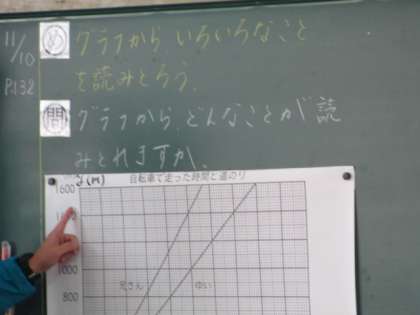 11/10
P132
め グラフから いろいろなこと
を読みとろう。
問 グラフから、どんなことが読
みとれますか。
y(m) 自転車で走った時間と道のり
1600
1000
800
兄さん ゆい